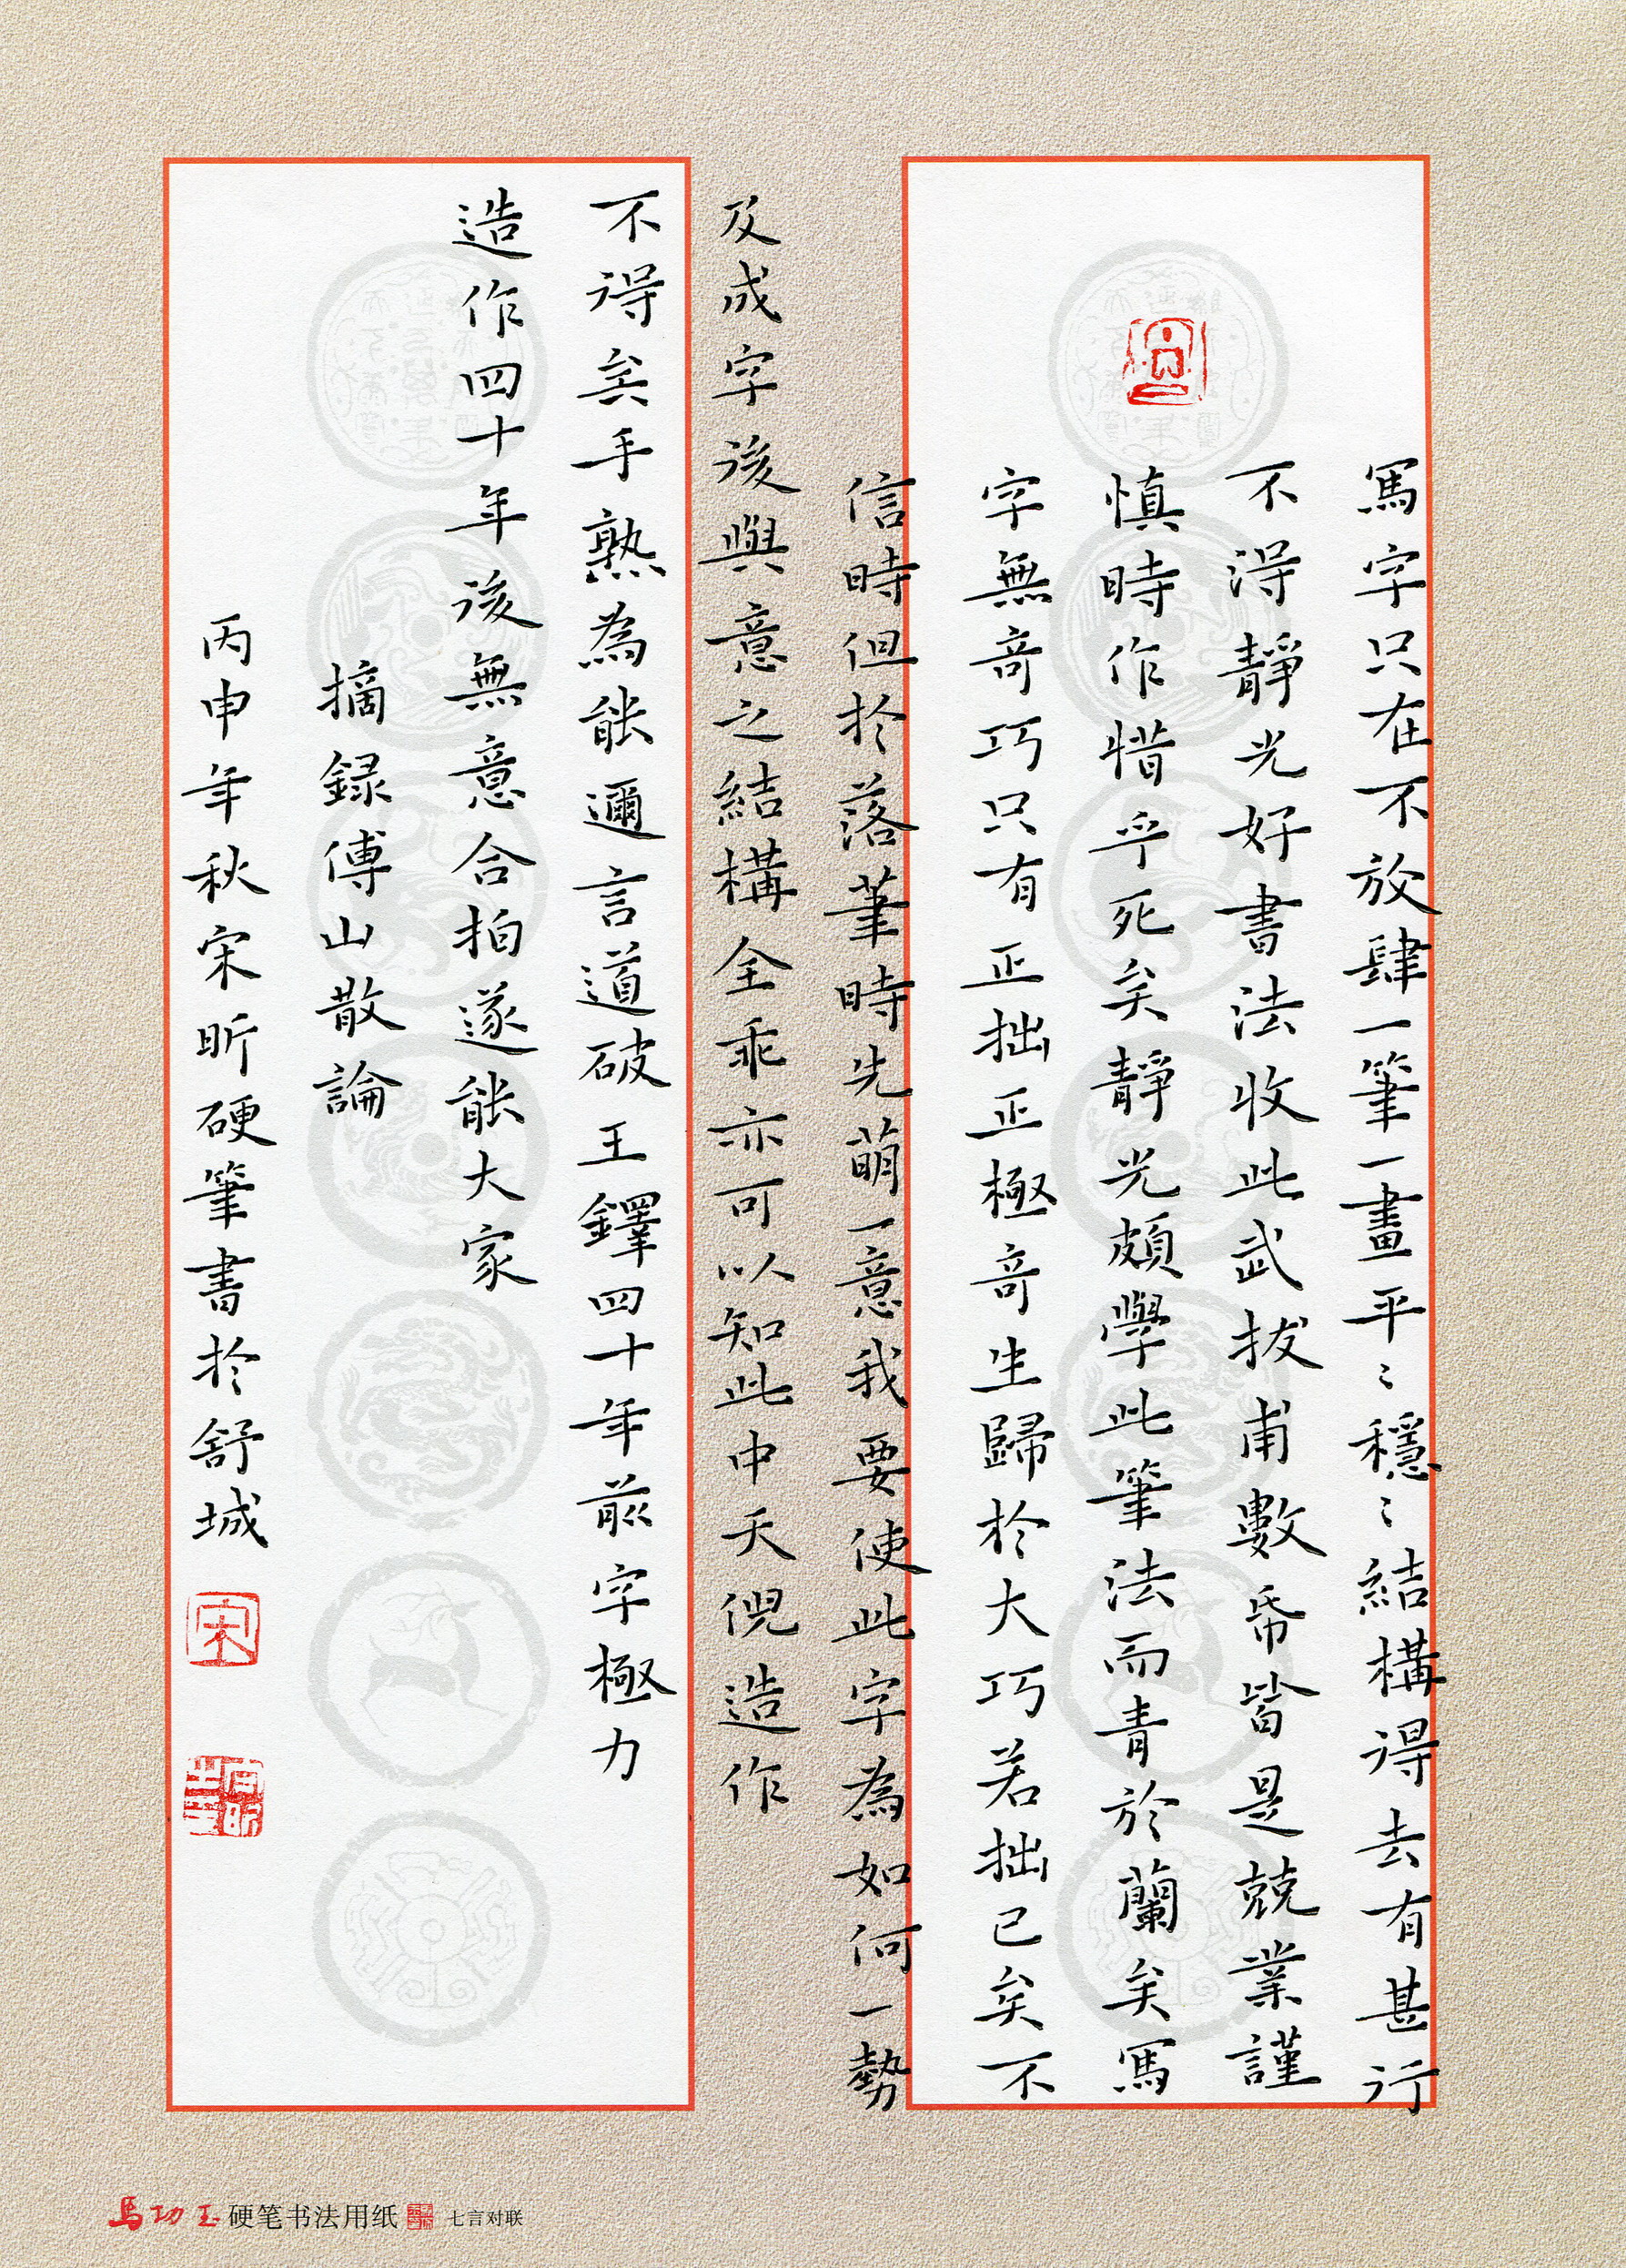 寫字只在不放肆一筆一畫平〻穩〻結構得去有甚行
不得靜光好書法收此武拔甫數帋皆是兢業謹
慎時作惜乎死矣靜光頗學此筆法而青於蘭矣寫
字無奇巧只有正拙正極奇生歸於大巧若拙已矣不
信時但於落筆時先萌一意我要使此字為如何一勢
及成字後與意之結構全乖亦可以知此中天倪造作
不得矣手熟為能邇言道破王鐸四十年前字極力
造作四十年後無意合拍遂能大家
摘録傅山散論
丙申年秋宋昕硬筆書於舒城
宋
馬功玉硬笔书法用纸 七言对联